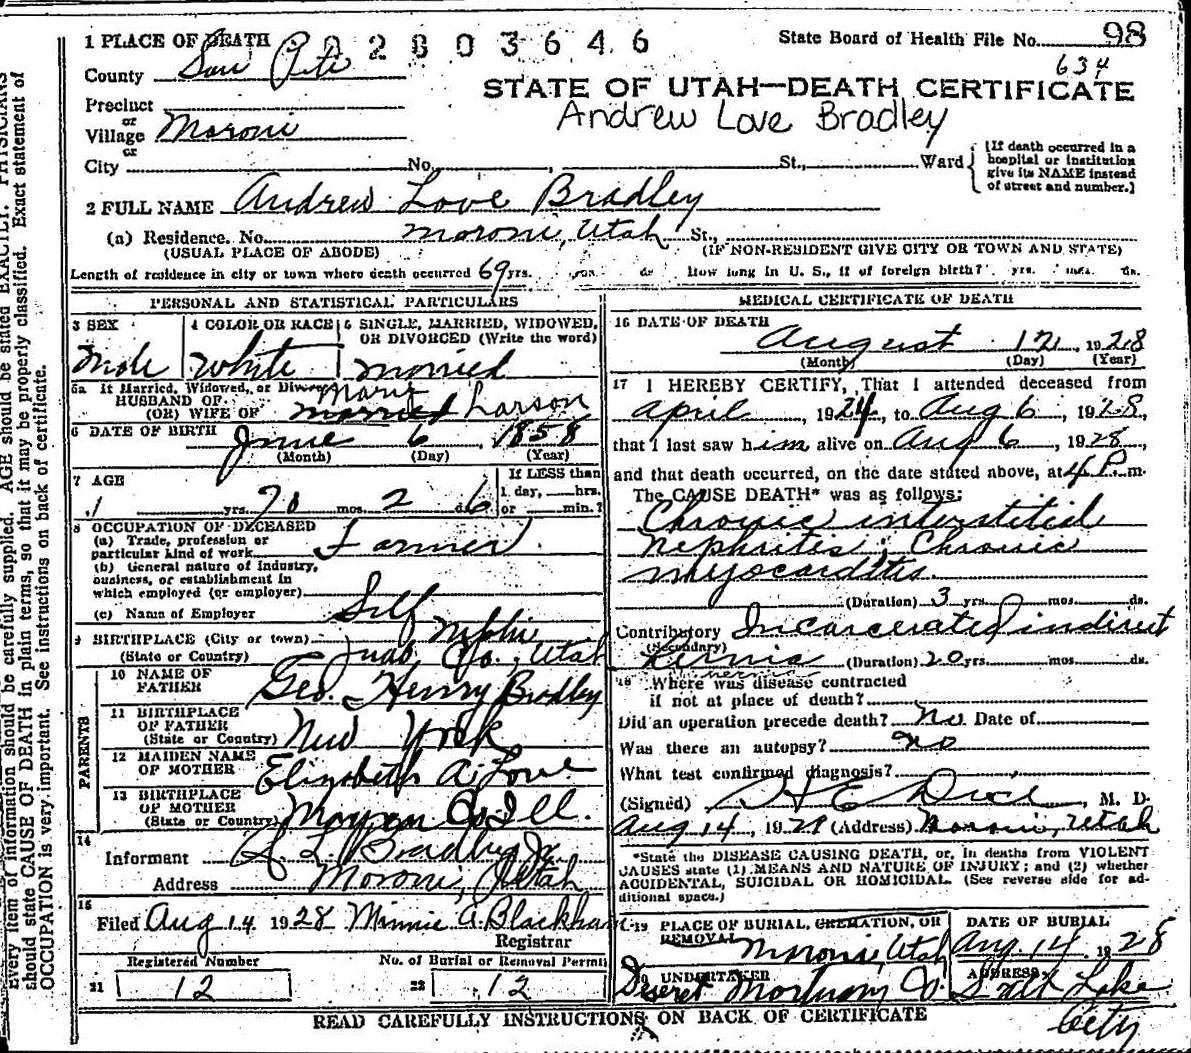 1 PLACE OF DEATH
2 8 0 3 6 4 6
State Board of Health File No. 98
634
County San Pete
STATE OF UTAH—DEATH CERTIFICATE
Andrew Love Bradley
Precinct
or
Village Moroni
or
City No. St., Ward
[If death occurred in a
hospital or institution
give its NAME instead
of street and number.]
2 FULL NAME Andrew Love Bradley
(a) Residence. No. Moroni, Utah St.,
(USUAL PLACE OF ABODE) (IF NON-RESIDENT GIVE CITY OR TOWN AND STATE)
Length of residence in city or town where death occurred 69 yrs. mos. ds. How long in U. S., if of foreign birth? yrs. mos. ds.
PERSONAL AND STATISTICAL PARTICULARS
3 SEX
Male
4 COLOR OR RACE
White
5 SINGLE, MARRIED, WIDOWED,
OR DIVORCED (Write the word)
Married
5a If Married, Widowed, or Divorced
HUSBAND OF
(OR) WIFE OF married Larson
6 DATE OF BIRTH June 6, 1858
(Month) (Day) (Year)
7 AGE
yrs. 70 mos. 2 ds. 6
If LESS than
1 day, hrs.
or min.?
8 OCCUPATION OF DECEASED
(a) Trade, profession or
particular kind of work Farmer
(b) General nature of industry,
business, or establishment in
which employed (or employer)
(c) Name of Employer Self
9 BIRTHPLACE (City or town) Nephi
(State or Country) Juab Co., Utah
PARENTS
10 NAME OF
FATHER Geo. Henry Bradley
11 BIRTHPLACE
OF FATHER
(State or Country) New York
12 MAIDEN NAME
OF MOTHER Elizabeth A. Love
13 BIRTHPLACE
OF MOTHER
(State or Country) Co Ill.
14
Informant A. L. Bradley Jr.
Address Moroni, Utah
15
Filed Aug 14 1928 Minnie A. Blackham
Registrar
Registered Number No. of Burial or Removal Permit
21 12 22 12
MEDICAL CERTIFICATE OF DEATH
16 DATE OF DEATH
August 12, 1928
(Month) (Day) (Year)
17 I HEREBY CERTIFY, That I attended deceased from
April, 1924, to Aug 6, 1928,
that I last saw him alive on Aug 6, 1928,
and that death occurred, on the date stated above, at 4 P. m.
The CAUSE DEATH* was as follows:
Chronic interstitial
nephritis; Chronic
myocarditis
(Duration) 3 yrs. mos. ds.
Contributory Incarcerated indirect
(Secondary)
hernia (Duration) 20 yrs. mos. ds.
hernia
18 Where was disease contracted
if not at place of death?
Did an operation precede death? No Date of
Was there an autopsy? No
What test confirmed diagnosis?
(Signed) H E Dice, M. D.
Aug 14, 1928 (Address) Moroni, Utah
*State the DISEASE CAUSING DEATH, or, in deaths from VIOLENT
CAUSES state (1) MEANS AND NATURE OF INJURY; and (2) whether
ACCIDENTAL, SUICIDAL OR HOMICIDAL. (See reverse side for ad-
ditional space.)
19 PLACE OF BURIAL, CREMATION, OR
REMOVAL Moroni, Utah
DATE OF BURIAL
Aug. 14 1928
20 UNDERTAKER
Deseret Mortuary Co.
ADDRESS
Salt Lake
City
READ CAREFULLY INSTRUCTIONS ON BACK OF CERTIFICATE
Every item of information should be carefully supplied. AGE should be stated EXACTLY. PHYSICIANS
should state CAUSE OF DEATH in plain terms, so that it may be properly classified. Exact statement of
OCCUPATION is very important. See instructions on back of certificate.